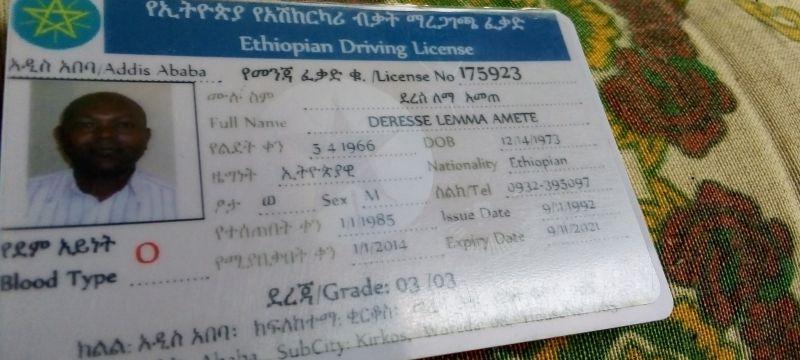 የኢትዮጵያ የአሽከርካሪ ብቃት ማረጋገጫ ፈቃድ
Ethiopian Driving License
አዲስ አበባ/Addis Ababa የመንጃ ፈቃድ ቁ. /License No 175923
ሙሉ ስም ደረስ ለማ አመጠ
Full Name DERESSE LEMMA AMETE
የልደት ቀን 3 4 1966 DOB 12/14/1973
ዜግነት ኢትዮጵያዊ Nationality Ethiopian
ፆታ ወ Sex M ስልክ/Tel 0932-395097
የተሰጠበት ቀን 1/1/1985 Issue Date 1992
የሚያበቃበት ቀን 1/1/2014 Expiry Date 9/11/2021
የደም አይነት O
Blood Type
ደረጃ/Grade: 03 /03
ክልል: አዲስ አበባ፡ ክፍለከተማ: ቂርቆስ፡
Ababa SubCity: Kirkos,